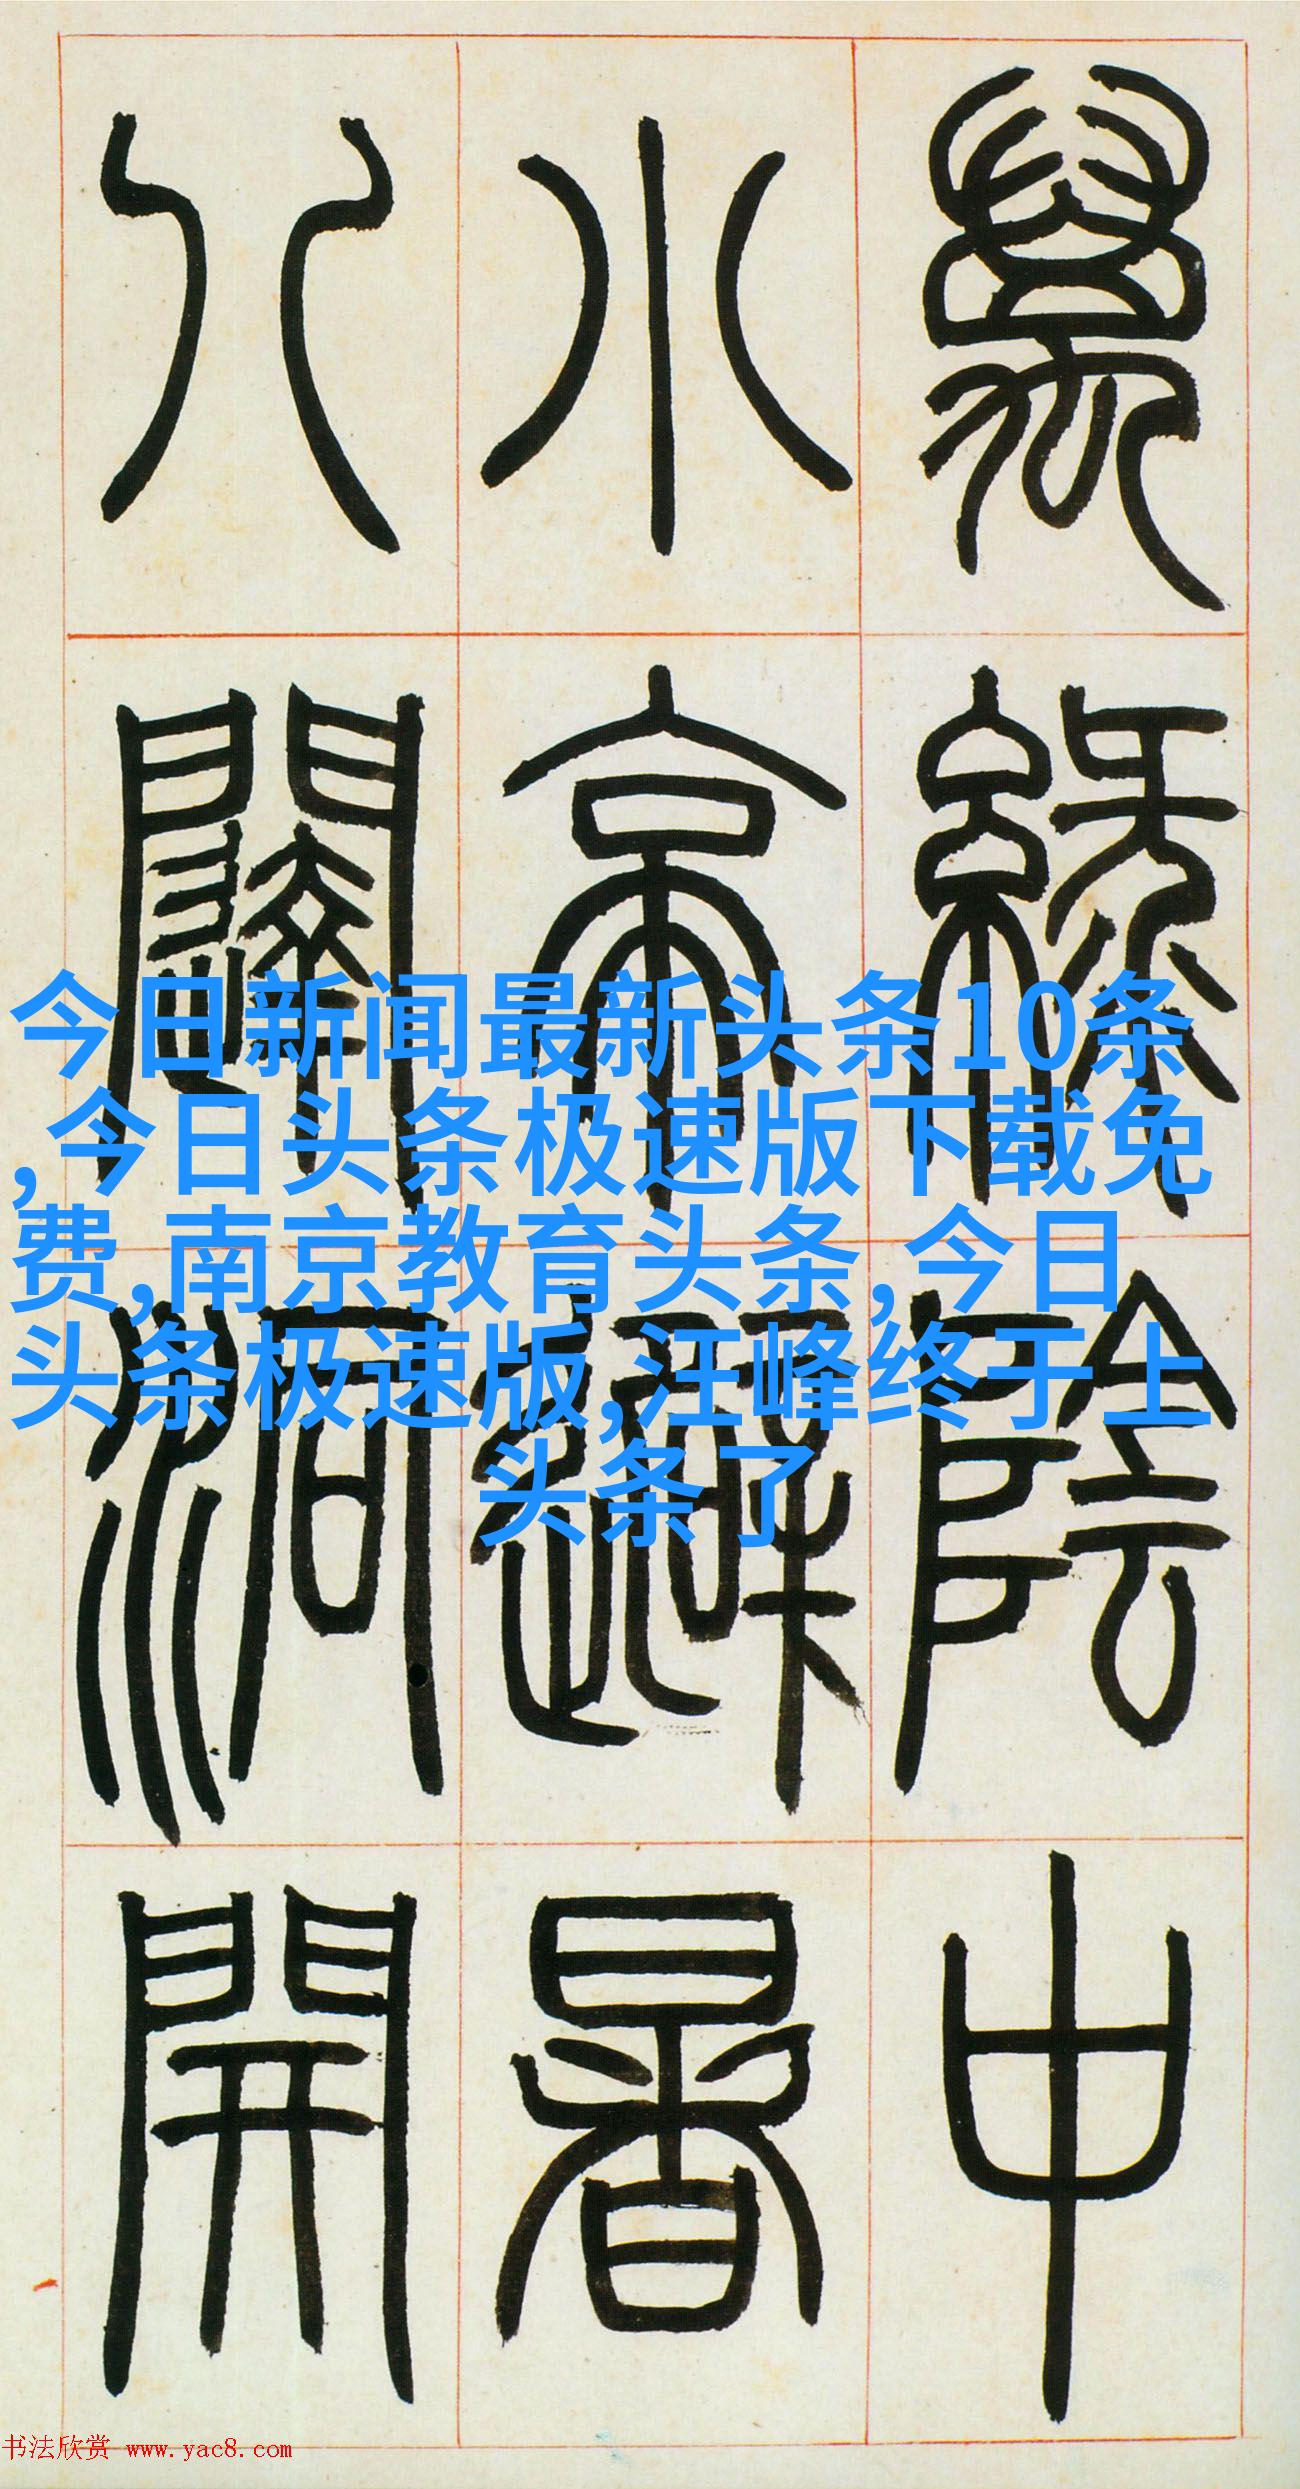 萬綠陰中
小亭避暑
八闥洞開
今日新闻最新头条10条
,今日头条极速版下载免
费,南京教育头条,今日
头条极速版,汪峰终于上
头条了
书法欣赏 www.yac8.com